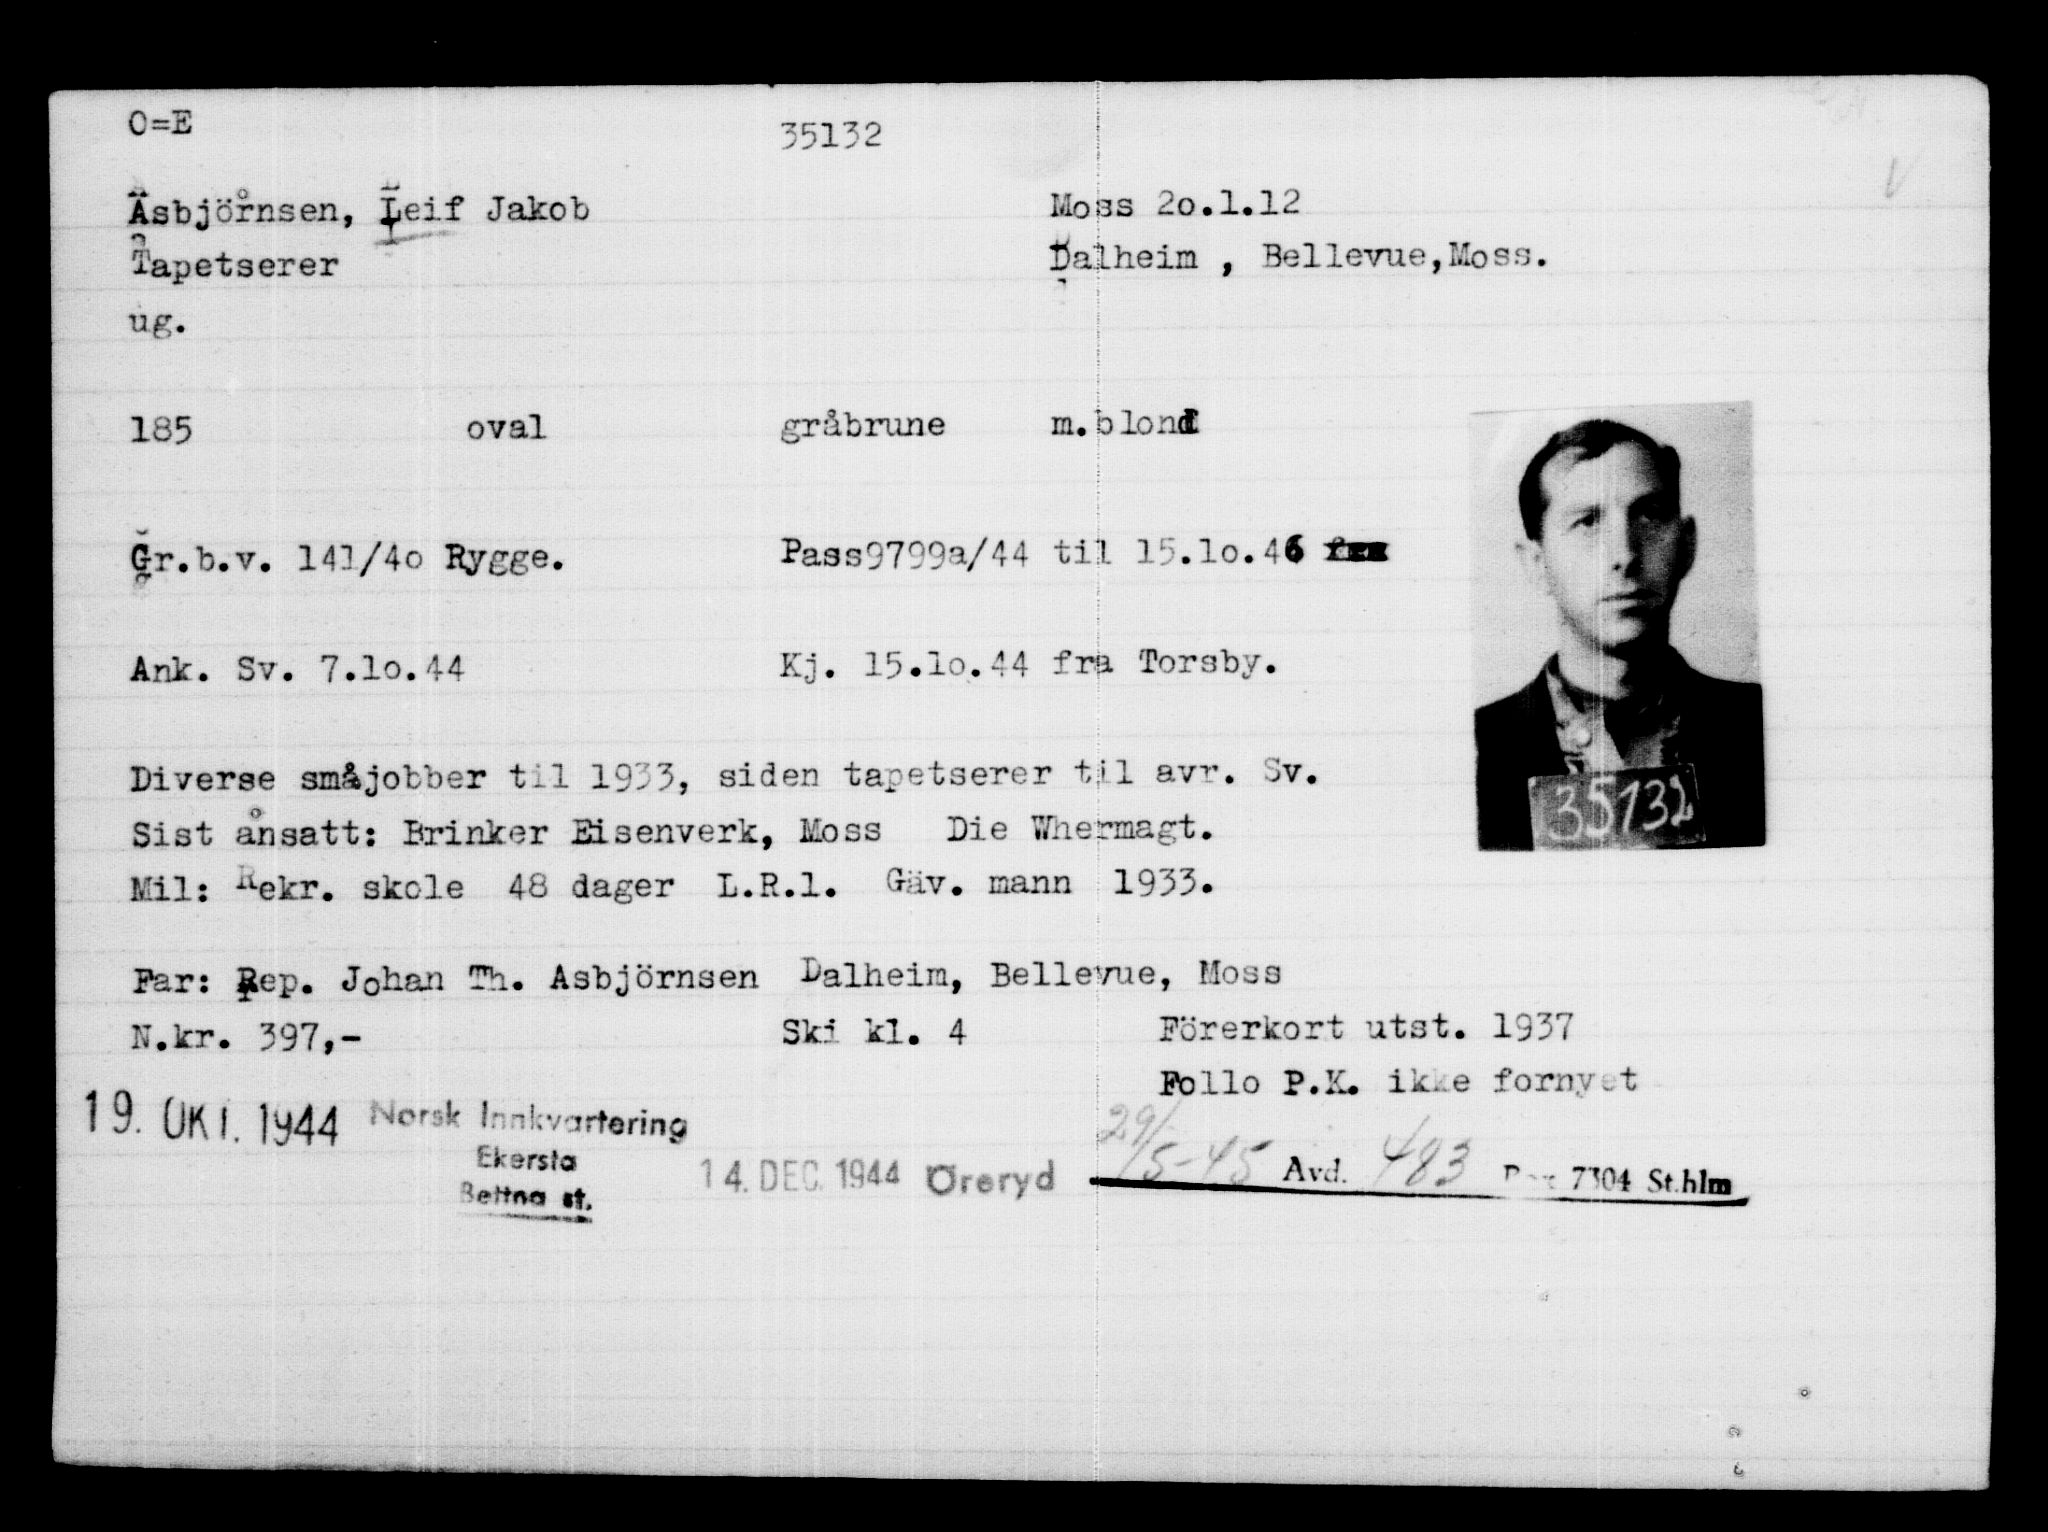 O=E 35132
Asbjörnsen, Leif Jakob Moss 2o.1.12
Tapetserer Dalheim , Bellevue,Moss.
ug.
185 oval gråbrune m.blond
Gr.b.v. 141/4o Rygge. Pass9799a/44 til 15.1o.46
Ank. Sv. 7.1o.44 Kj. 15.1o.44 fra Torsby.
Diverse småjobber til 1933, siden tapetserer til avr. Sv.
35132
Sist ansatt: Brinker Eisenverk, Moss Die Whermagt.
Mil: Rekr. skole 48 dager L.R.1. Gäv. mann 1933.
Far: Rep. Johan Th. Asbjörnsen Dalheim, Bellevue, Moss
N.kr. 397,- Ski kl. 4 Förerkort utst. 1937
Follo P.K. ikke fornyet
19. OKT. 1944 Norsk Innkvartering
Ekersta
Bettna st.
14. DEC. 1944 Öreryd
29/5-45 Avd. 483 Box 7304 St.hlm